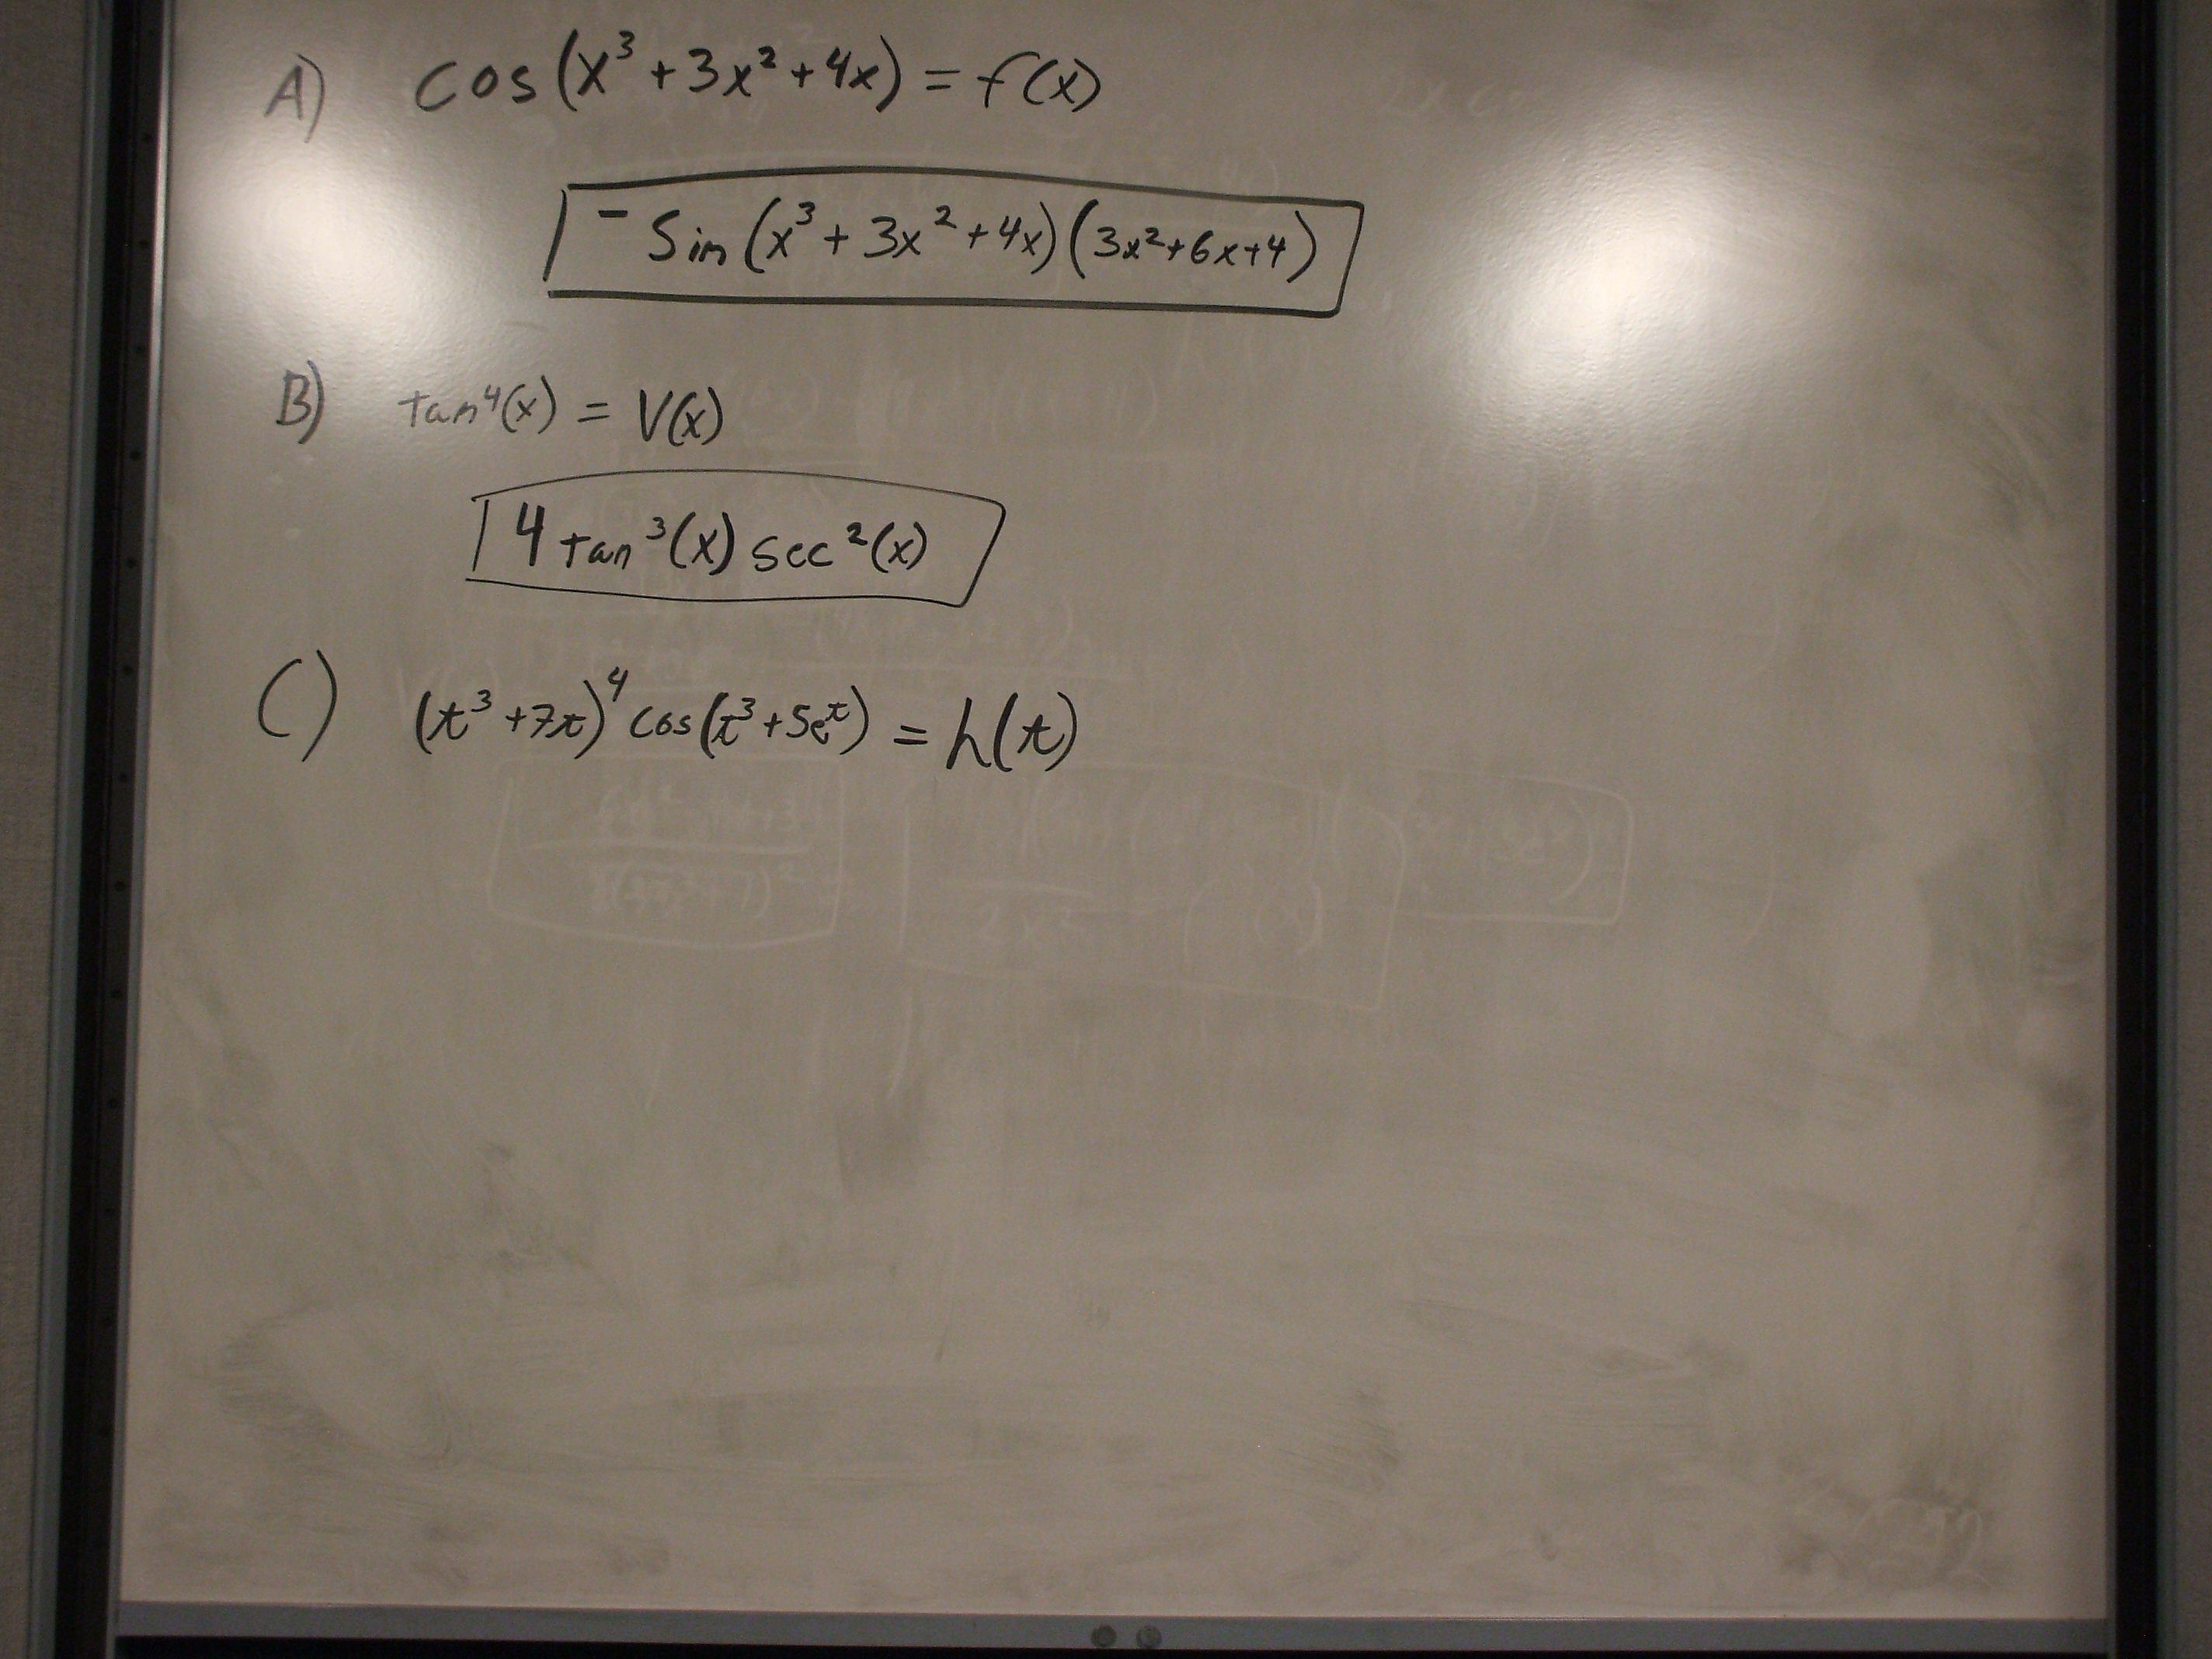 A) cos(x³+3x²+4x) = f(x)
-Sin(x³+3x²+4x)(3x²+6x+4)
B) tan⁴(x) = V(x)
4 tan³(x) sec²(x)
C) (t³+7t)⁴ cos(t³+5eᵗ) = h(t)